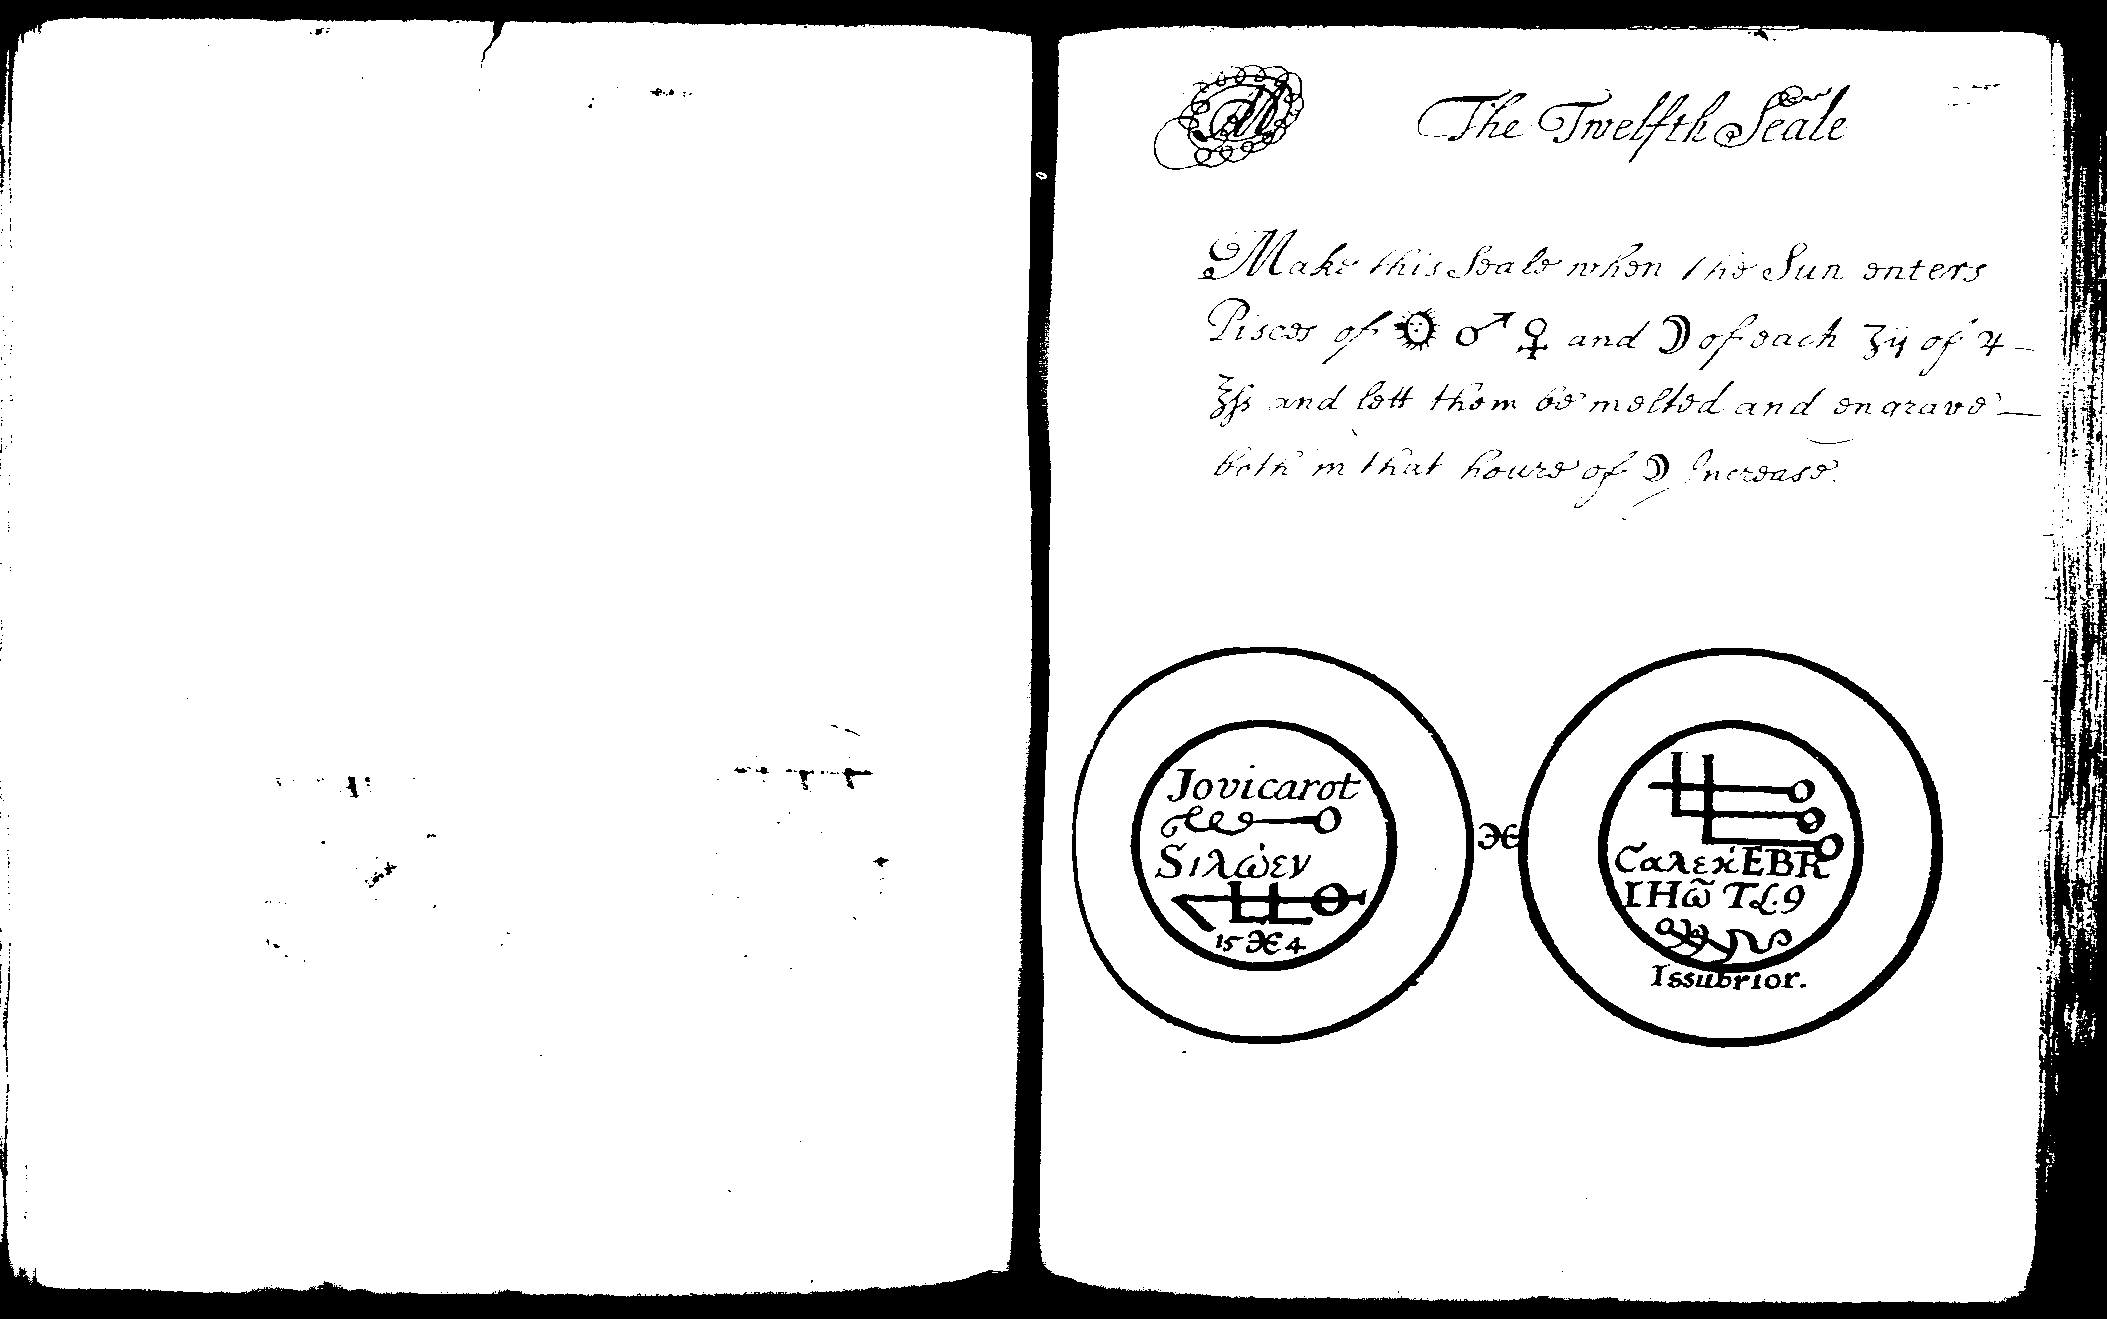 The Twelfth Seale
Make this Seale when the Sun enters
Pisces of ☉ ♂ ♀ and ☽ of each ʒij of ♃
ʒſs and lett them be melted and engrave
both in that houre of ☽ Increase.
Jovicarot
Sιλώεν
15 ♓ 4
♓
CαλεκEBR
IHω̃ TL.9
Issubrior.